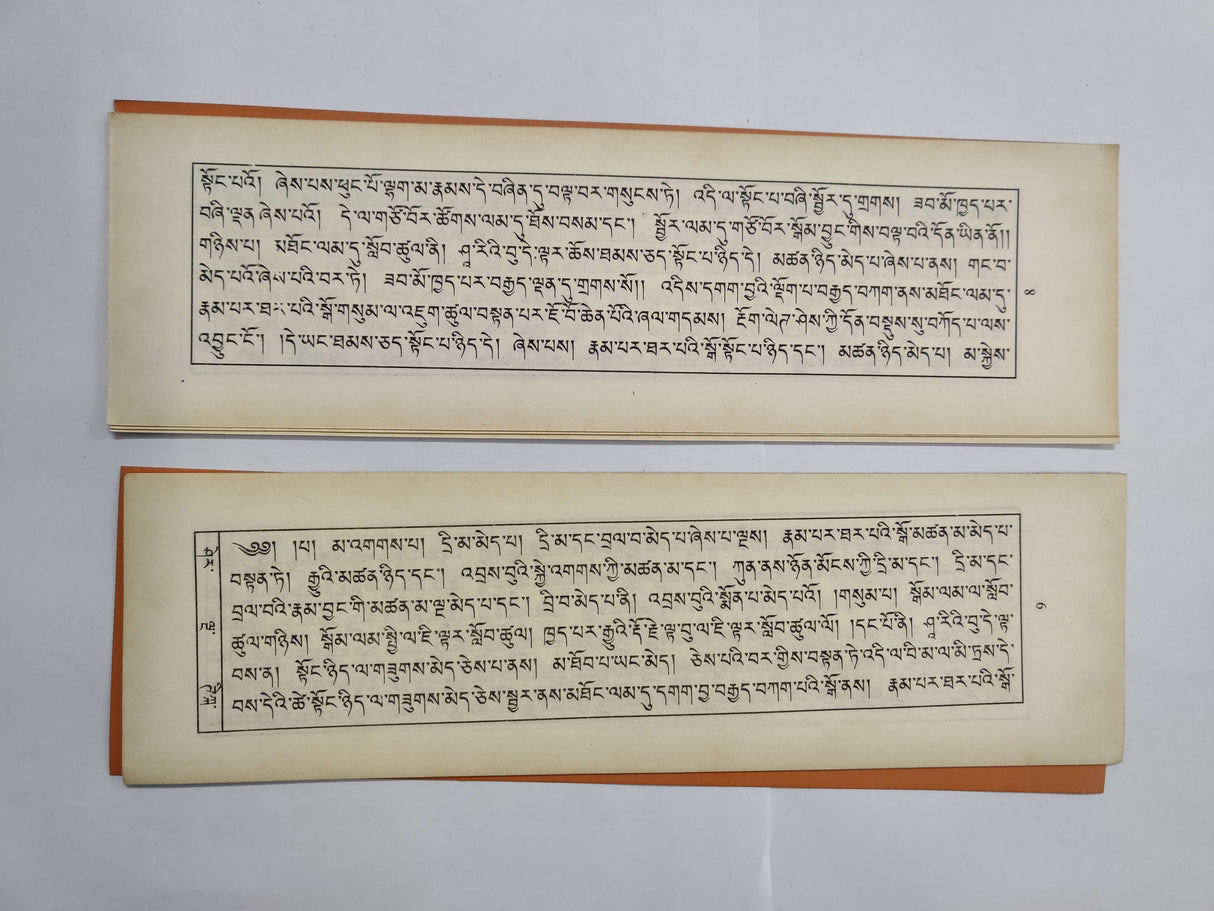 སྟོང་པའོ། ཞེས་པས་ཕུང་པོ་ལྷག་མ་རྣམས་དེ་བཞིན་དུ་བལྟ་བར་གསུངས་ཏེ། འདི་ལ་སྟོང་པ་བཞི་སྦྱོར་དུ་གྲགས། ཟབ་མོ་ཁྱད་པར་
བཞི་ལྡན་ཞེས་པའོ། དེ་ལ་གཙོ་བོར་ཚོགས་ལམ་དུ་ཐོས་བསམ་དང་། སྦྱོར་ལམ་དུ་གཙོ་བོར་སྒོམ་བྱུང་གིས་བལྟ་བའི་དོན་ཡིན་ནོ།།
གཉིས་པ། མཐོང་ལམ་དུ་སློབ་ཚུལ་ནི། ཤཱ་རིའི་བུ་དེ་ལྟར་ཆོས་ཐམས་ཅད་སྟོང་པ་ཉིད་དེ། མཚན་ཉིད་མེད་པ་ཞེས་པ་ནས། གང་བ་
མེད་པའོ་ཞེས་པའི་བར་ཏེ། ཟབ་མོ་ཁྱད་པར་བརྒྱད་ལྡན་དུ་གྲགས་སོ།། འདིས་དགག་བྱའི་ལྡོག་པ་བརྒྱད་བཀག་ནས་མཐོང་ལམ་དུ་
རྣམ་པར་ཐར་པའི་སྒོ་གསུམ་ལ་འཇུག་ཚུལ་བསྟན་པར་ཇོ་བོ་ཆེན་པོའི་ཞལ་གདམས། རྔོག་ལེཊ་ཤེས་ཀྱི་དོན་བསྡུས་སུ་བཀོད་པ་ལས་
འབྱུང་ངོ་། །དེ་ཡང་ཐམས་ཅད་སྟོང་པ་ཉིད་དེ། ཞེས་པས། རྣམ་པར་ཐར་པའི་སྒོ་སྟོང་པ་ཉིད་དང་། མཚན་ཉིད་མེད་པ། མ་སྐྱེས་
༄༅། །པ། མ་འགགས་པ། དྲི་མ་མེད་པ། དྲི་མ་དང་བྲལ་བ་མེད་པ་ཞེས་པ་ལྔས། རྣམ་པར་ཐར་པའི་སྒོ་མཚན་མ་མེད་པ་
བསྟན་ཏེ། རྒྱུའི་མཚན་ཉིད་དང་། འབྲས་བུའི་སྐྱེ་འགགས་ཀྱི་མཚན་མ་དང་། ཀུན་ནས་ཉོན་མོངས་ཀྱི་དྲི་མ་དང་། དྲི་མ་དང་
བྲལ་བའི་རྣམ་བྱང་གི་མཚན་མ་ལྔ་མེད་པ་དང་། བྲི་བ་མེད་པ་ནི། འབྲས་བུའི་སྨོན་པ་མེད་པའོ། །གསུམ་པ། སྒོམ་ལམ་ལ་སློབ་
ཚུལ་གཉིས། སྒོམ་ལམ་སྤྱི་ལ་ཇི་ལྟར་སློབ་ཚུལ། ཁྱད་པར་རྒྱུའི་རྡོ་རྗེ་ལྟ་བུ་ལ་ཇི་ལྟར་སློབ་ཚུལ་ལོ། །དང་པོ་ནི། ཤཱ་རིའི་བུ་དེ་ལྟ་
བས་ན། སྟོང་ཉིད་ལ་གཟུགས་མེད་ཅེས་པ་ནས། མ་ཐོབ་པ་ཡང་མེད། ཅེས་པའི་བར་གྱིས་བསྟན་ཏེ་འདི་ལ་བི་མ་ལ་མི་ཏྲས་དེ་
བས་དེའི་ཚེ་སྟོང་ཉིད་ལ་གཟུགས་མེད་ཅེས་སྦྱར་ནས་མཐོང་ལམ་དུ་དགག་བྱ་བརྒྱད་བཀག་པའི་སྒོ་ནས། རྣམ་པར་ཐར་པའི་སྒོ་